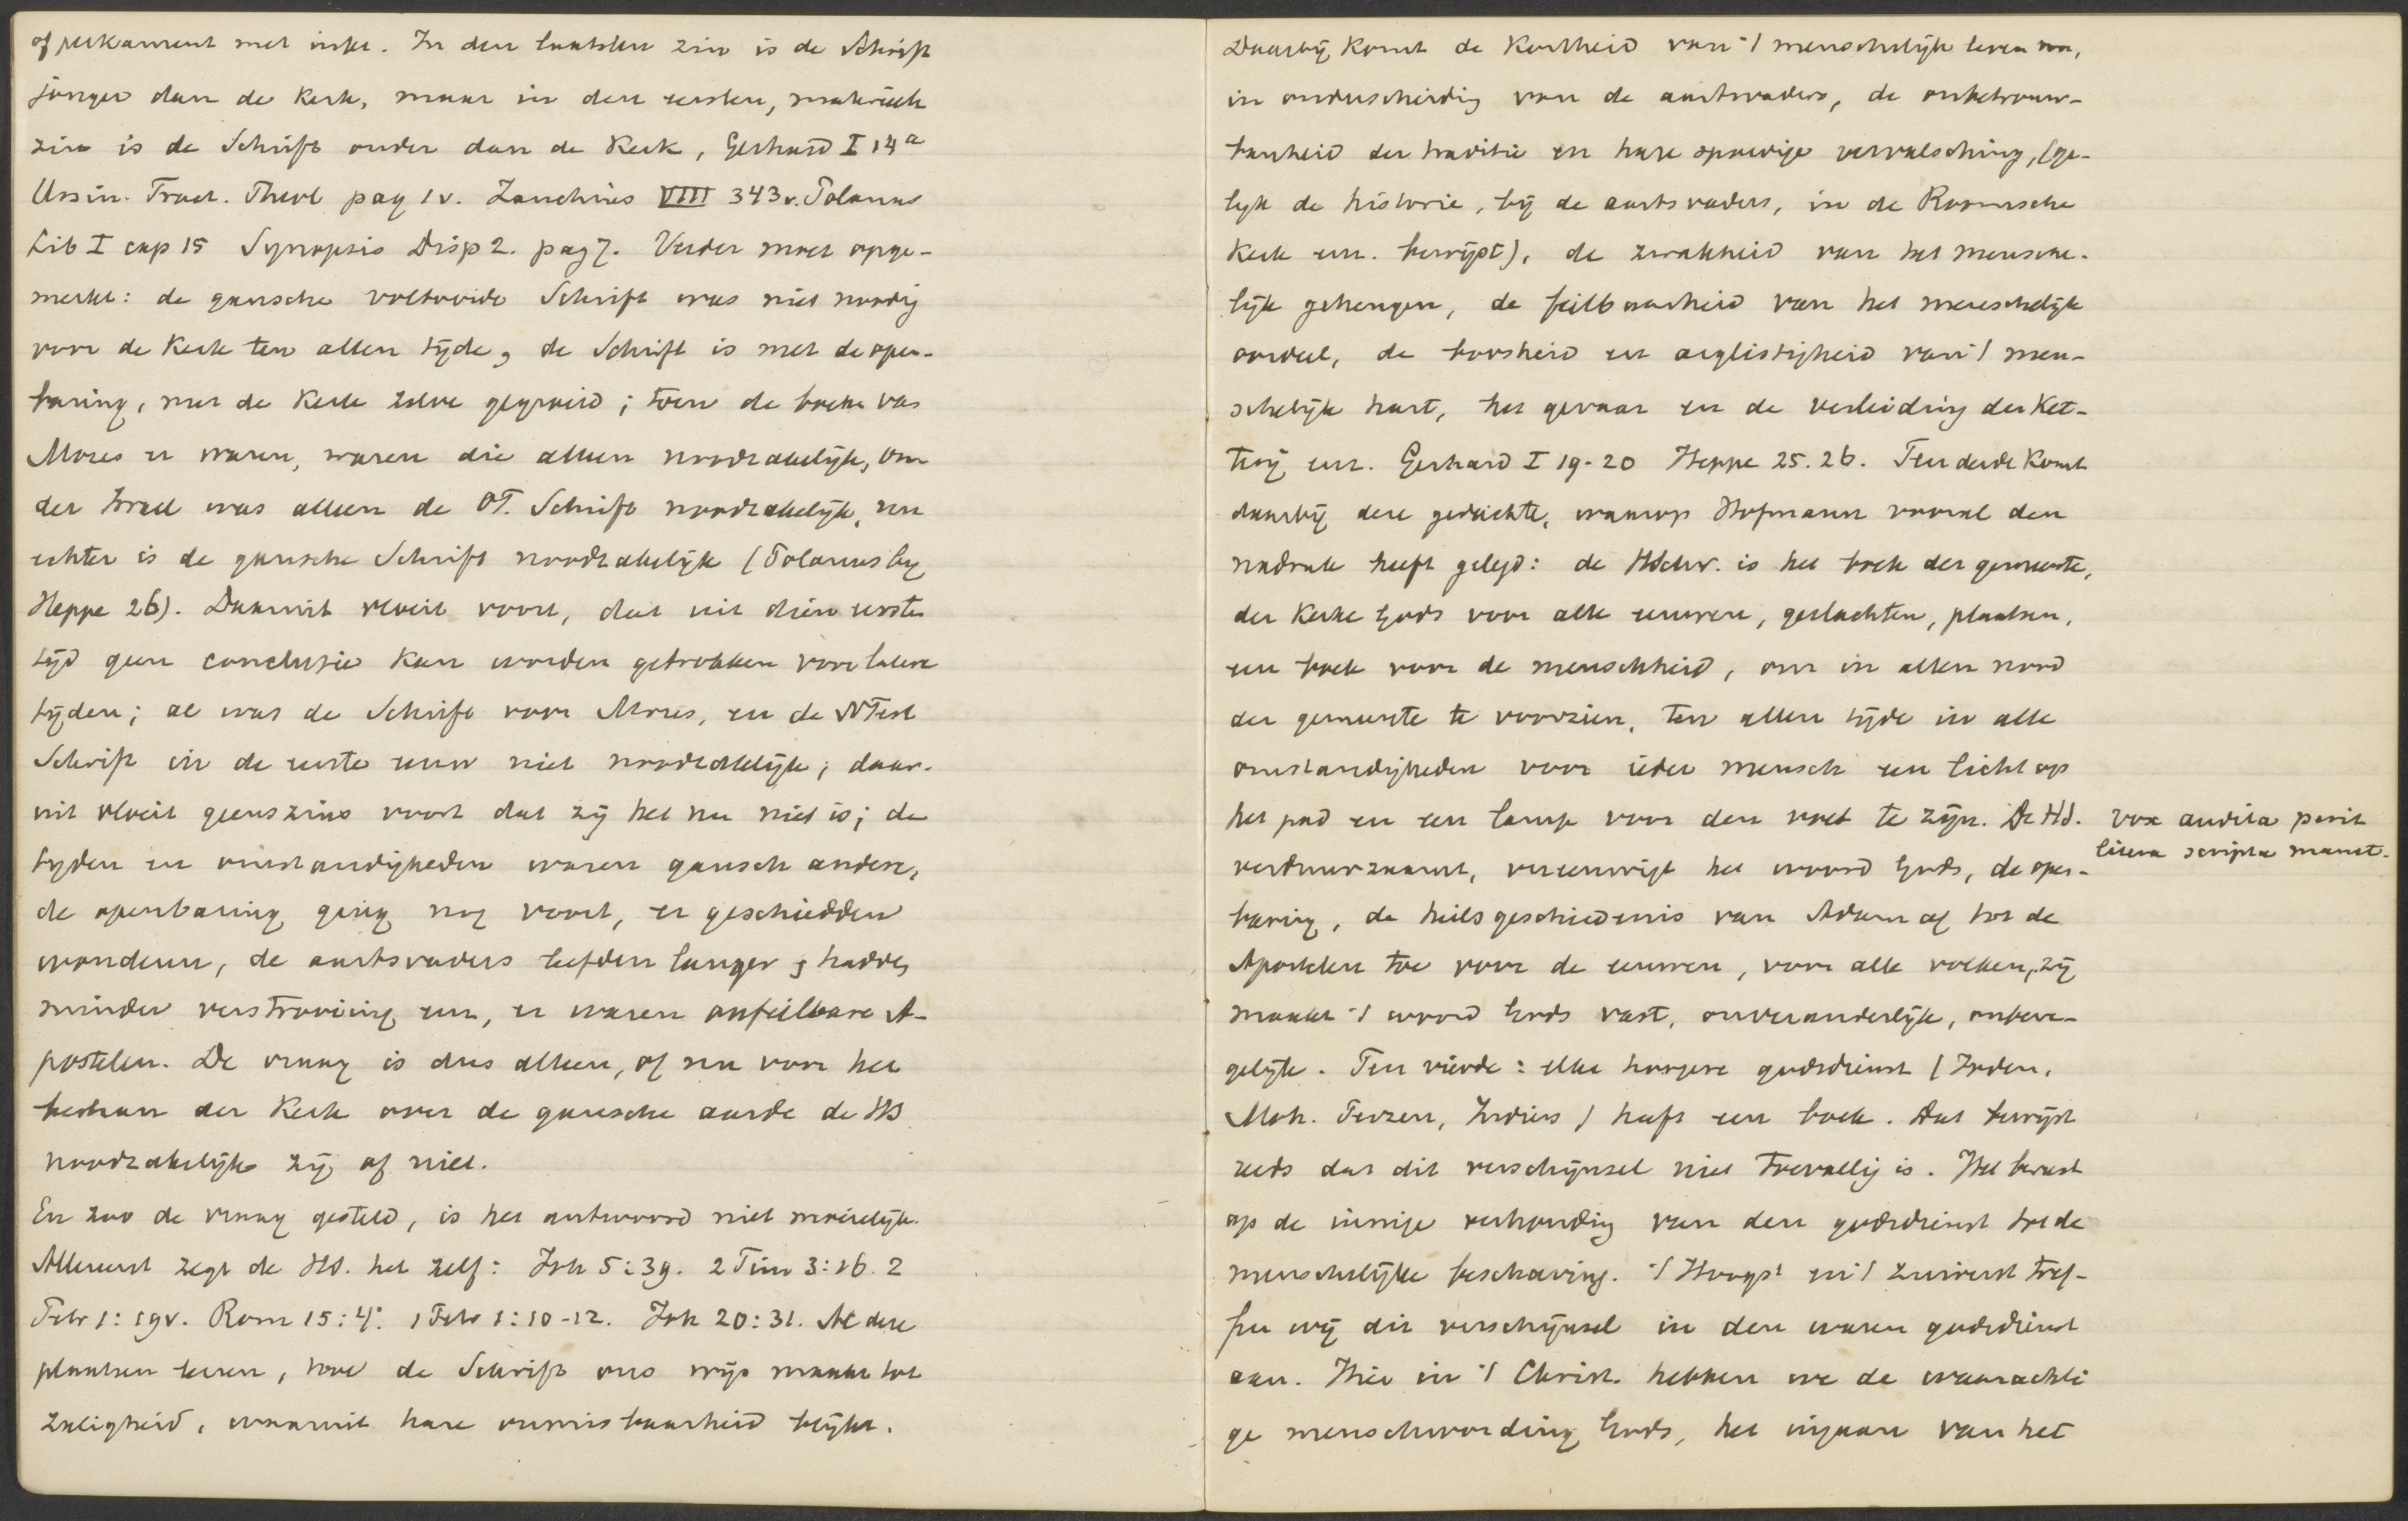 of perkament met inkt. In den laatsten zin is de Schrift
jonger dan de Kerk, maar in den eersten, materieele
zin is de Schrift ouder dan de Kerk, Gerhard I 14a
Ursin. Tract. Theol pag 1v. Zanchius VIII 343v. Polanus
Lib I cap 15 Synopsis Disp 2. pag 7. Verder moet opge-
merkt: de gansche voltooide Schrift was niet noodig
voor de Kerk ten allen tijde, de Schrift is met de open-
baring, met de Kerk zelve gegroeid; toen de boeken van
Mozes er waren, waren die alleen noodzakelijk, on
der Israel was alleen de OT. Schrift noodzakelijk, nu
echter is de gansche Schrift noodzakelijk (Polanus bij
Heppe 26). Daaruit vloeit voort, dat uit dien eersten
tijd geen conclusie kan worden getrokken voor latere
tijden; al was de Schrift voor Mozes, en de NTest
Schrift in de eerste eeuw niet noodzakelijk; daar-
uit vloeit geenszins voort dat zij het nu niet is; de
tijden en omstandigheden waren gansch andere,
de openbaring ging nog voort, er geschiedden
wonderen, de aartsvaders leefden langer, hadden
minder verstrooiing enz, er waren onfeilbare A-
postelen. De vraag is dus alleen, of nu voor het
bestaan der Kerk over de gansche aarde de HS
noodzakelijk zij of niet.
En zoo de vraag gesteld, is het antwoord niet moeielijk.
Allereerst zegt de HS. het zelf: Joh 5:39. 2 Tim 3:16. 2
Petr 1:19v. Rom 15:4. 1 Petr 1:10-12. Joh 20:31. Al deze
plaatsen leeren, hoe de Schrift ons wijs maakt tot
zaligheid, waaruit hare onmisbaarheid blijkt.
Daarbij komt de kortheid van 't menschelijk leven nu,
in onderscheiding van de aartsvaders, de onbetrouw-
baarheid der traditie en hare spoedige vervalsching, (ge-
lijk de historie, bij de aartsvaders, in de Roomsche
Kerk enz. bewijst), de zwakheid van het mensche-
lijk geheugen, de feilbaarheid van het menschelijk
oordeel, de boosheid en arglistigheid van 't men-
schelijk hart, het gevaar en de verleiding der Ket-
terij enz. Gerhard I 19-20 Heppe 25.26. Ten derde komt
daarbij deze gedachte, waarop Hofmann vooral den
nadruk heeft gelegd: de HSchr. is het boek der gemeente,
der Kerke Gods voor alle eeuwen, geslachten, plaatsen,
een boek voor de menschheid, om in allen nood
der gemeente te voorzien, ten allen tijde in alle
omstandigheden voor ieder mensch een licht op
het pad en een lamp voor den voet te zijn. De HS.
verduurzaamt, vereeuwigt het woord Gods, de open-
baring, de heilsgeschiedenis van Adam af tot de
Apostelen toe voor de eeuwen, voor alle volken, zij
maakt 't woord Gods vast, onveranderlijk, onbewe-
gelijk. Ten vierde: elke hoogere godsdienst (Joden,
Moh. Perzen, Indiers) heeft een boek. Dat bewijst
reeds dat dit verschijnsel niet toevallig is. Het berust
op de innige verhouding van den godsdienst tot de
menschelijke beschaving. 't Hoogst en 't zuiverst tref-
fen wij dit verschijnsel in den waren godsdienst
aan. Hier in 't Christ. hebben we de waarachti
ge menschwording Gods, het ingaan van het
vox audita perit
litera scripta manet.